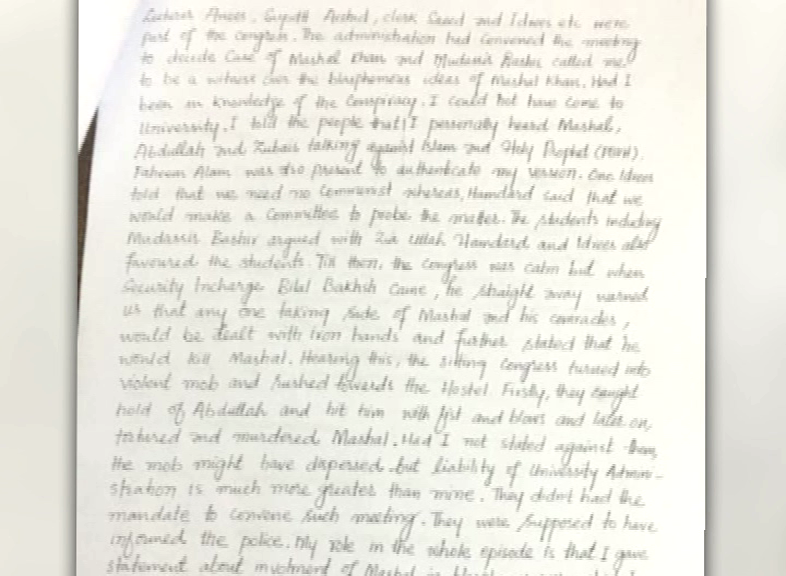 Lecturer Anees, Supdtt Arshad, clerk Saeed and Idrees etc were
part of the congress. The administration had convened the meeting
to decide case of Mashal Khan and Mudassir Bashir called me
to be a witness over the blasphemous ideas of Mashal Khan. Had I
been in knowledge of the conspiracy. I could not have come to
University. I told the people that I personally heard Mashal,
Abdullah and Zubair talking against Islam and Holy Prophet (PBUH).
Faheem Alam was also present to authenticate my version. One Idrees
told that we need no communist whereas, Hamdard said that we
would make a Committee to probe the matter. The students including
Mudassir Bashir argued with Zia Ullah Hamdard and Idrees also
favoured the students. Till then, the congress was calm but when
Security Incharge Bilal Bakhsh came, he straight away warned
us that any one taking side of Mashal and his comrades,
would be dealt with iron hands and further stated that he
would kill Mashal. Hearing this, the sitting congress turned into
violent mob and rushed towards the Hostel. Firstly, they caught
hold of Abdullah and hit him with fist and blows and later on,
tortured and murdered Mashal. Had I not stated against them,
the mob might have dispersed but liability of University Admini-
stration is much more greater than mine. They didn't had the
mandate to convene such meeting. They were supposed to have
informed the police. My role in the whole episode is that I gave
statement about involment of Mashal in